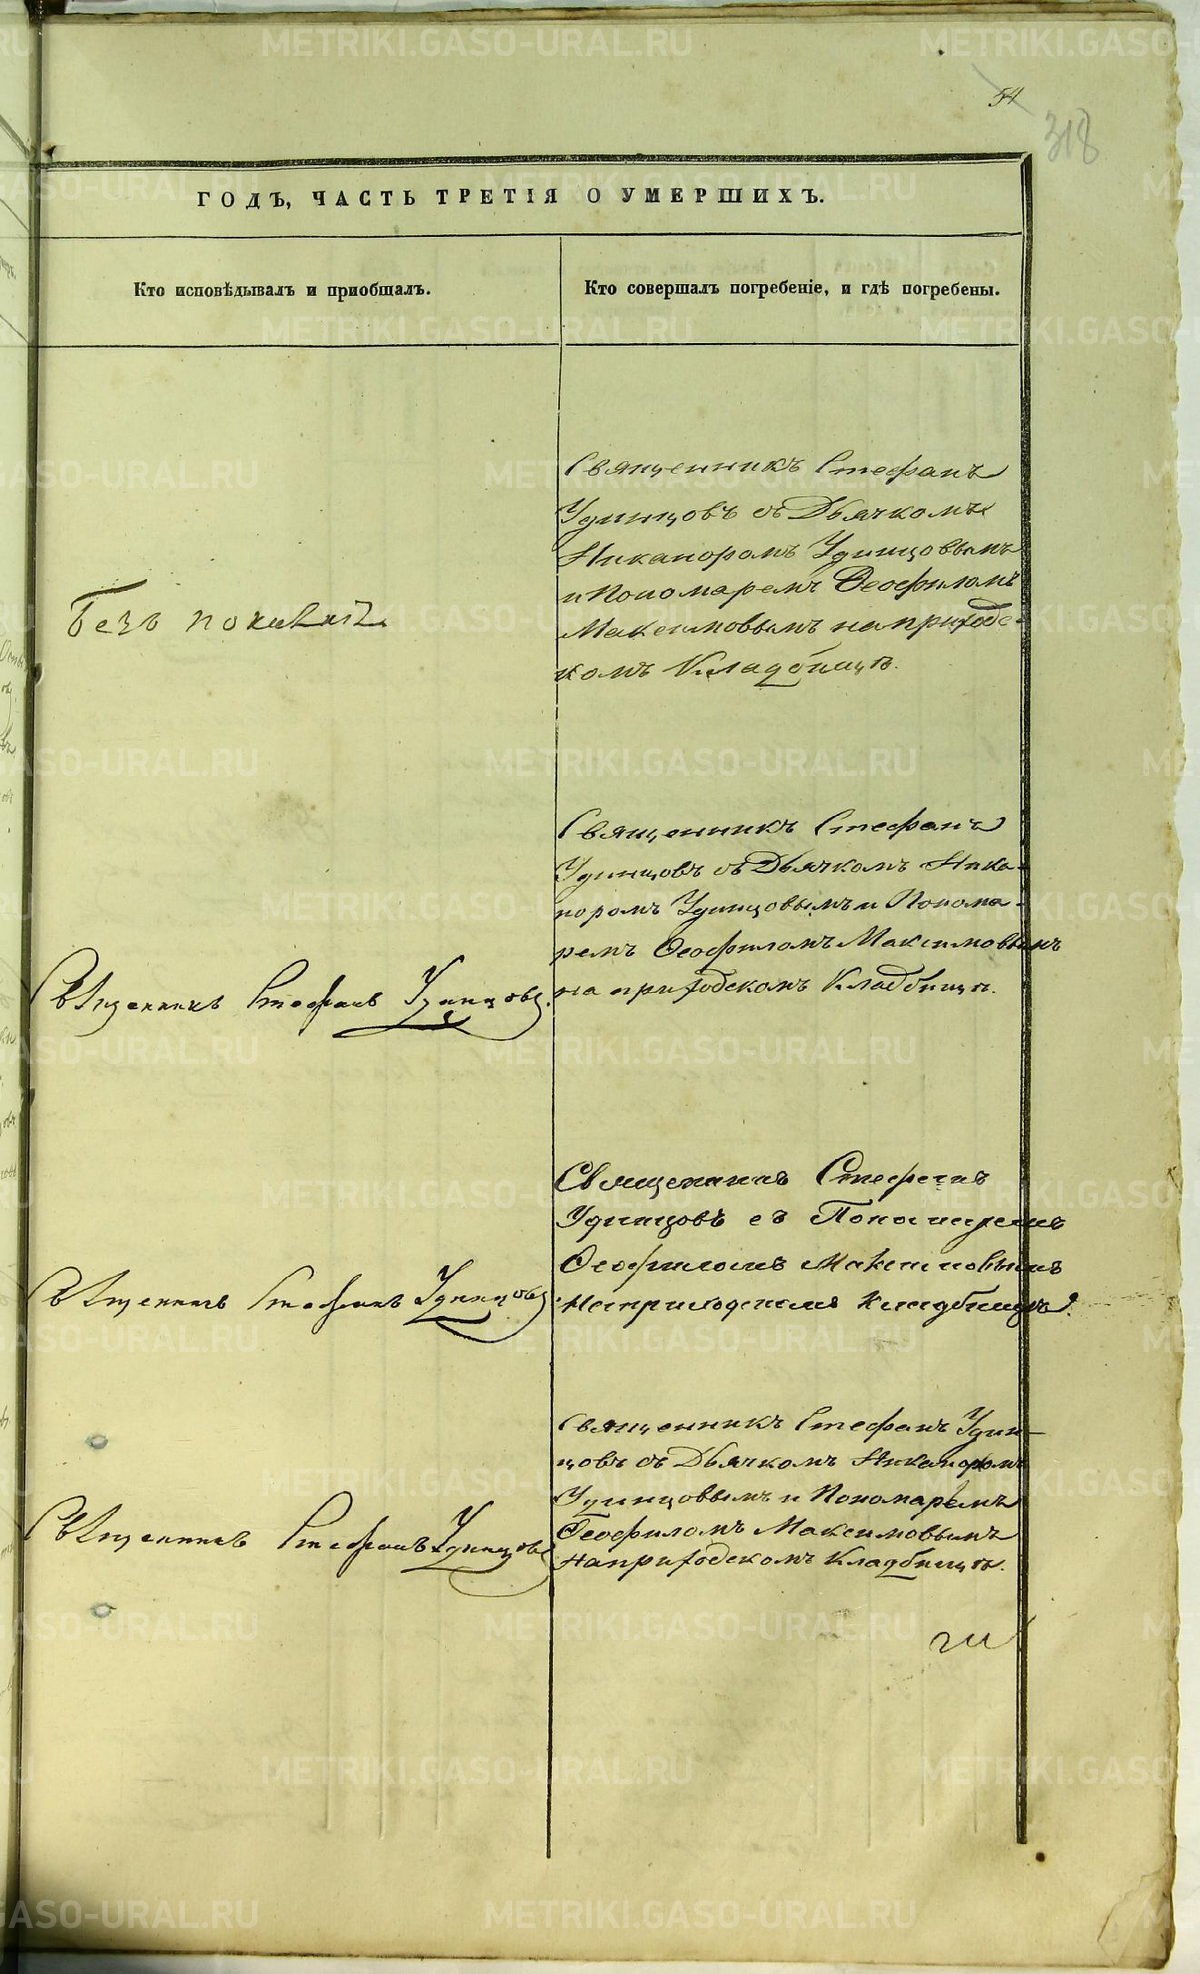 54
318
ГОДЪ, ЧАСТЬ ТРЕТІЯ О УМЕРШИХЪ.
Кто исповѣдывалъ и приобщалъ.
Кто совершалъ погребеніе, и гдѣ погребены.
Священникъ Стефанъ
Удинцовъ съ Дьячкомъ
Никаноромъ Удинцовымъ
и Пономаремъ Ѳеофиломъ
Максимовымъ на приходс-
комъ Кладбищѣ.
Безъ
Священникъ Стефанъ
Удинцовъ съ Дьячкомъ Ника-
норомъ Удинцовымъ и Понома-
ремъ Ѳеофиломъ Максимовымъ
на приходскомъ Кладбищѣ.
Священникъ Стефанъ Удинцовъ.
Священникъ Стефанъ
Удинцовъ съ Пономаремъ
Ѳеофиломъ Максимовымъ
на приходскомъ кладбищѣ.
Священникъ Стефанъ Удинцовъ
Священникъ Стефанъ Удин-
цовъ съ Дьячкомъ Никаноромъ
Удинцовымъ и Пономаремъ
Ѳеофиломъ Максимовымъ
на приходскомъ Кладбищѣ.
Священникъ Стефанъ Удинцовъ
METRIKI.GASO-URAL.RU